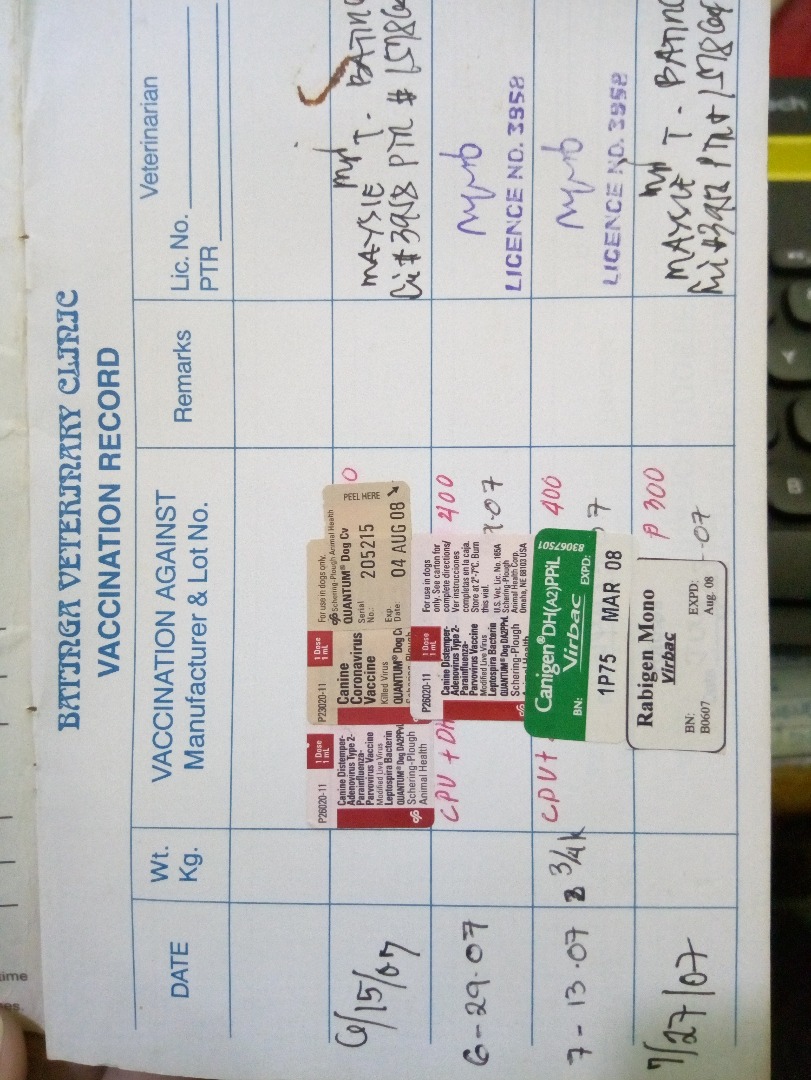 BATINGA VETERINARY CLINIC
VACCINATION RECORD
DATE
Wt.
Kg.
VACCINATION AGAINST
Manufacturer & Lot No.
Remarks
Veterinarian
Lic. No.
PTR
6/15/07
P26020-11
1 Dose
1 mL
Canine Distemper-
Adenovirus Type 2-
Parainfluenza-
Parvovirus Vaccine
Modified Live Virus
Leptospira Bacterin
QUANTUM® Dog DA2PPvL
Schering-Plough
Animal Health
P23020-11
1 Dose
1 mL
Canine
Coronavirus
Vaccine
Killed Virus
QUANTUM® Dog Cv
For use in dogs only.
Schering-Plough Animal Health
QUANTUM® Dog Cv
Serial
No.:
205215
Exp.
Date:
04 AUG 08
PEEL HERE
0
MAYSIE T. BATING
Lic # 3958 PTR #
6-29-07
CPV + DH
P26020-11
1 Dose
1 mL
Canine Distemper-
Adenovirus Type 2-
Parainfluenza-
Parvovirus Vaccine
Modified Live Virus
Leptospira Bacterin
QUANTUM® Dog DA2PPvL
Schering-Plough
Animal Health
For use in dogs
only. See carton for
complete directions/
Ver instrucciones
completas en la caja.
Store at 2°-7°C. Burn
this vial.
U.S. Vet. Lic. No. 165A
Schering-Plough
Animal Health Corp.
Omaha, NE 68103 USA
400
07
LICENCE NO. 3958
7-13-07
3/4k
CPV +
Canigen® DH(A2)PPiL
Virbac
BN:
EXPD:
83067501
1P75 MAR 08
400
7
LICENCE NO. 3958
7/27/07
Rabigen Mono
Virbac
BN:
B0607
EXPD:
Aug. 08
P 300
-07
MAYSIE T. BATIN